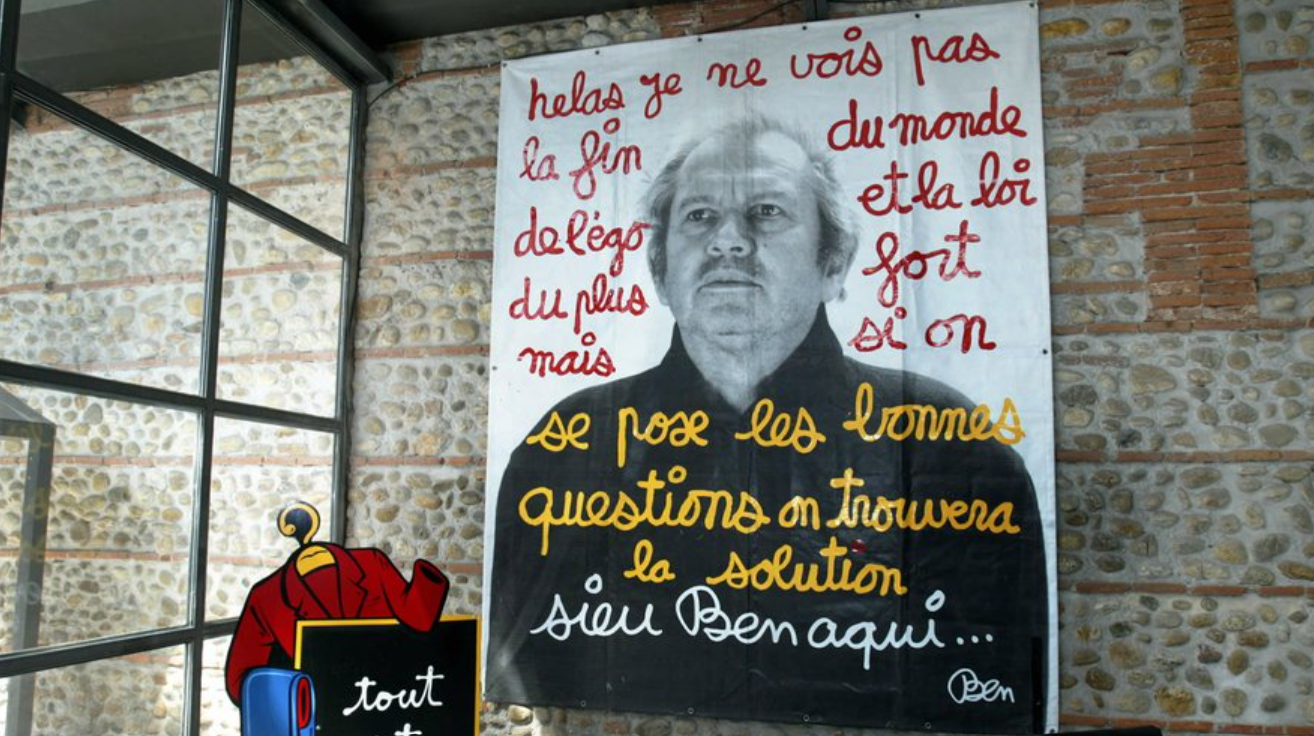 helas je ne vois pas
la fin du monde
de l'égo et la loi
du plus fort
mais si on
se pose les bonnes
questions on trouvera
la solution
sieu Ben aqui...
Ben
tout